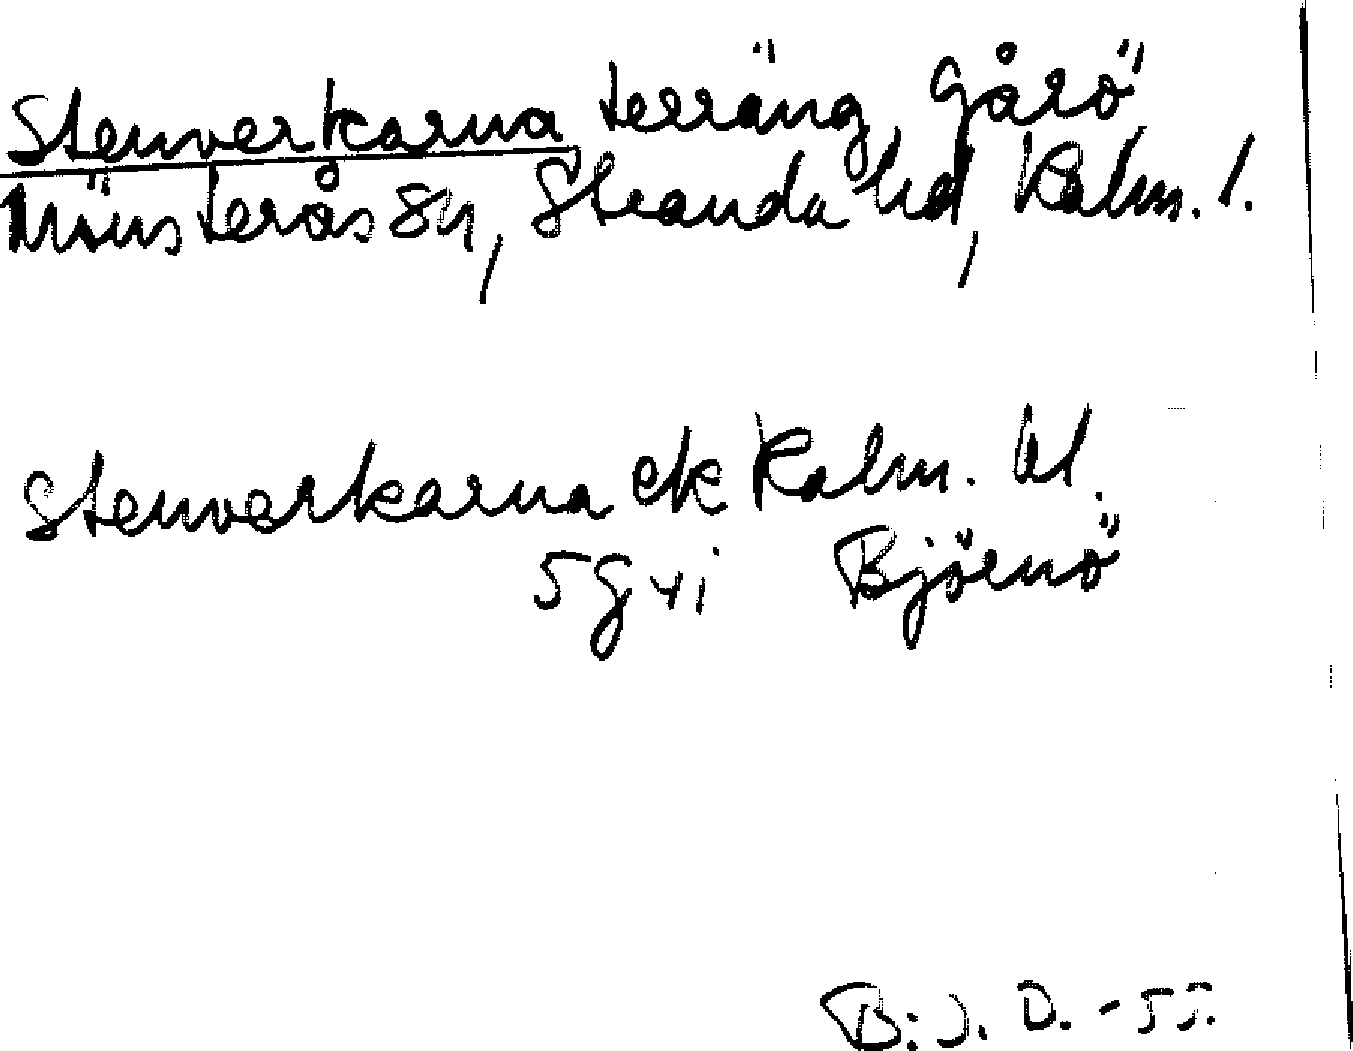 Stenverkarna terräng, Gårö
Mönsterås sn, Stranda hd, Kalm. l.
Stenverkarna ek Kalm. ut.
5g vi Björnö
B:J. D. -55.